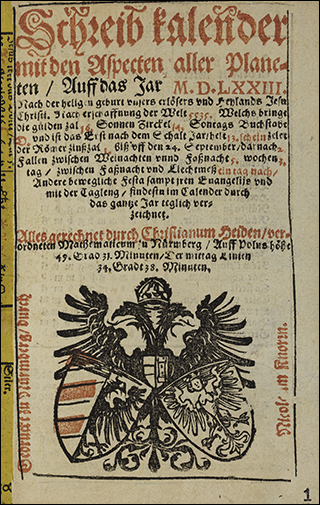 Schreib kalender
mit den Aspecten aller Plane-
ten / Auff das Jar M. D. LXXIII.
Nach der heiligen geburt vnsers erlösers vnd Heylands Jesu
Christi. Nach erschaffung der Welt 5535. Welchs bringt
die gülden zal 16. Sonnen Circkel 14. Sontags Buchstabe
D. vnd ist das Erst nach dem Schalt Jar / helt 13. schein zeler
der Römer zinßzal 1. biß vff den 24. September / darnach
Fallen zwischen Weinachten vnnd Faßnacht 5. wochen
tag / zwischen Faßnacht vnd Liechtmeß ein tag nach /
Andere bewegliche Festa sampt jren Euangelijs vnd
mit der Tagleng / findestu im Calender durch
das gantze Jar teglich ver-
zeichnet.
Alles gerechnet durch Christianum Heiden / ver-
ordneten Mathematicum zu Nürnberg / Auff Polus höhe
49. Grad 31. Minuten / Der mittag Linien
34. Gradt 38. Minuten.
Gedruckt zu Nuremberg / durch
Nicolaum Knorrn.
1